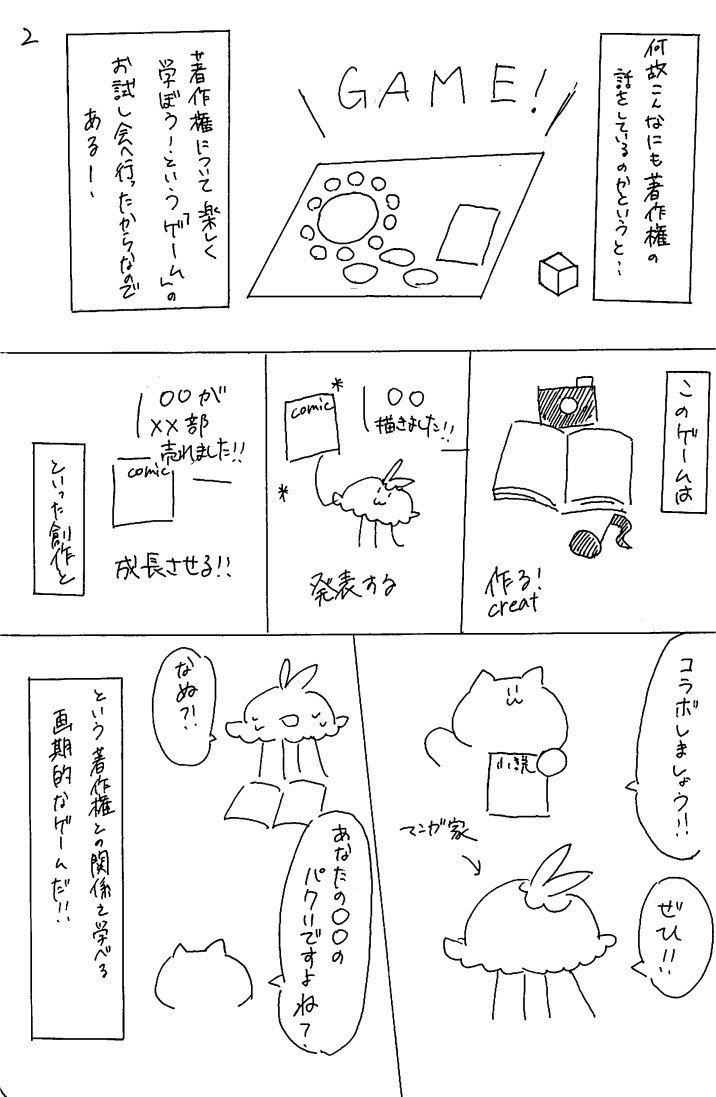 2
何故こんなにも著作権の
話をしているのかというと…
GAME!
著作権について楽しく
学ぼう！という「ゲーム」の
お試し会へ行ったからなので
あるー、
このゲームは
作る!
creat
comic
○○
描きました!!
発表する
○○が
××部
売れました!!
comic
成長させる!!
といった創作と
コラボしましょう!!
小説
マンガ家
ぜひ!!
なぬ?!
あなたの○○の
パクリですよね？
という著作権との関係を学べる
画期的なゲームだ!!